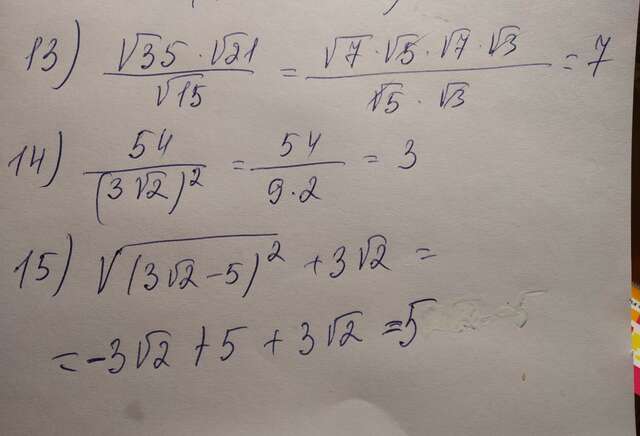 13) √35 · √21 / √15 = √7 · √5 · √7 · √3 / √5 · √3 = 7
14) 54 / (3√2)² = 54 / 9·2 = 3
15) √(3√2 - 5)² + 3√2 =
= -3√2 + 5 + 3√2 = 5